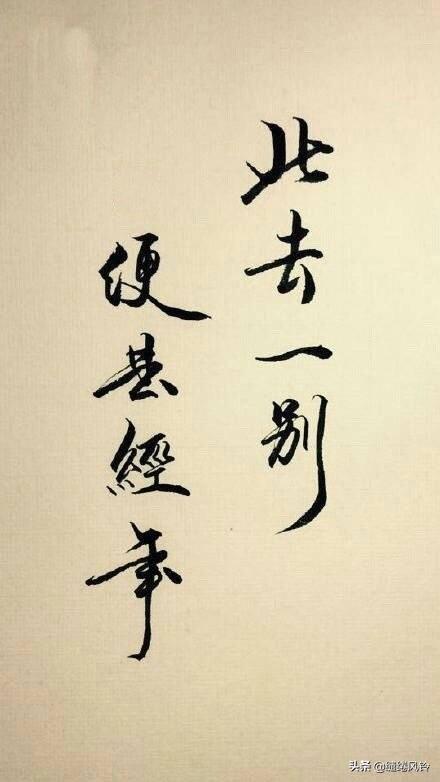 此去一别
便甚經年
头条 @缱绻风铃